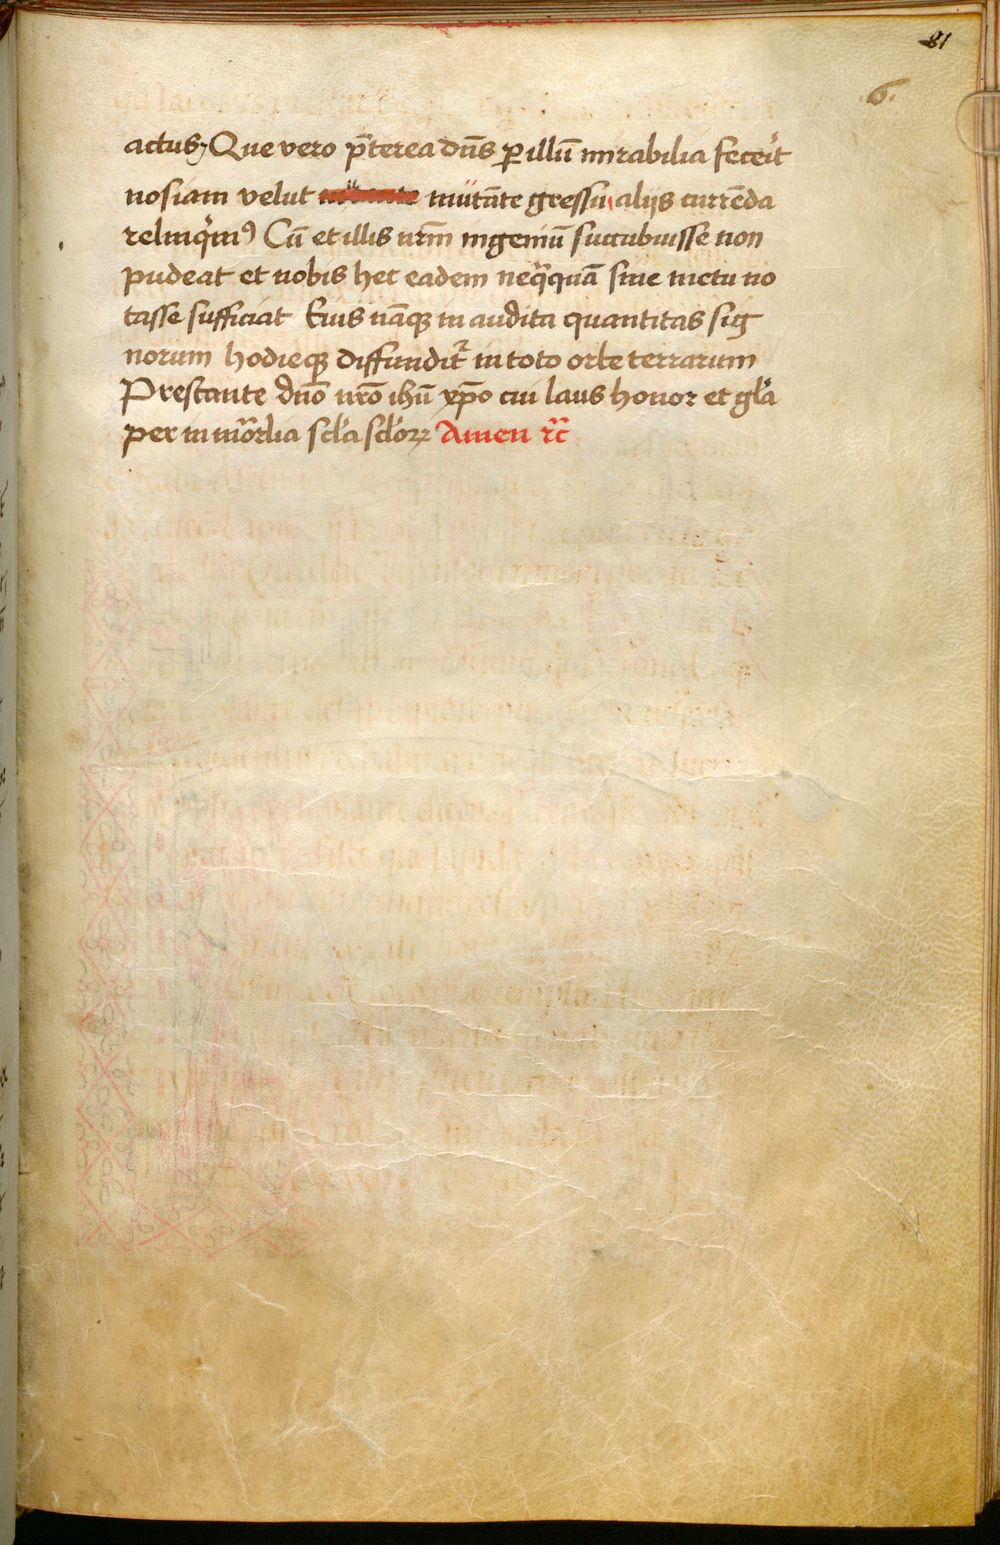 81
6.
actus; Que vero p̄terea dn̄s ꝑ illū mirabilia fecerit
nosiam velut mutāte gressu alijs currēda
relinqͥmꝰ Cū et illis nr̄m ingeniū succubuisse non
pudeat et nobis hec eadem neqͣquā sine metu no
tasse sufficiat Eius nāqꝫ in audita quantitas sig
norum hodieqꝫ diffundit᷑ in toto orbe terrarum
Prestante dn̄o nr̄o ihū xp̄o cui laus honor et gl̄a
per in mōrtlia scl̄a scl̄orꝝ Amen